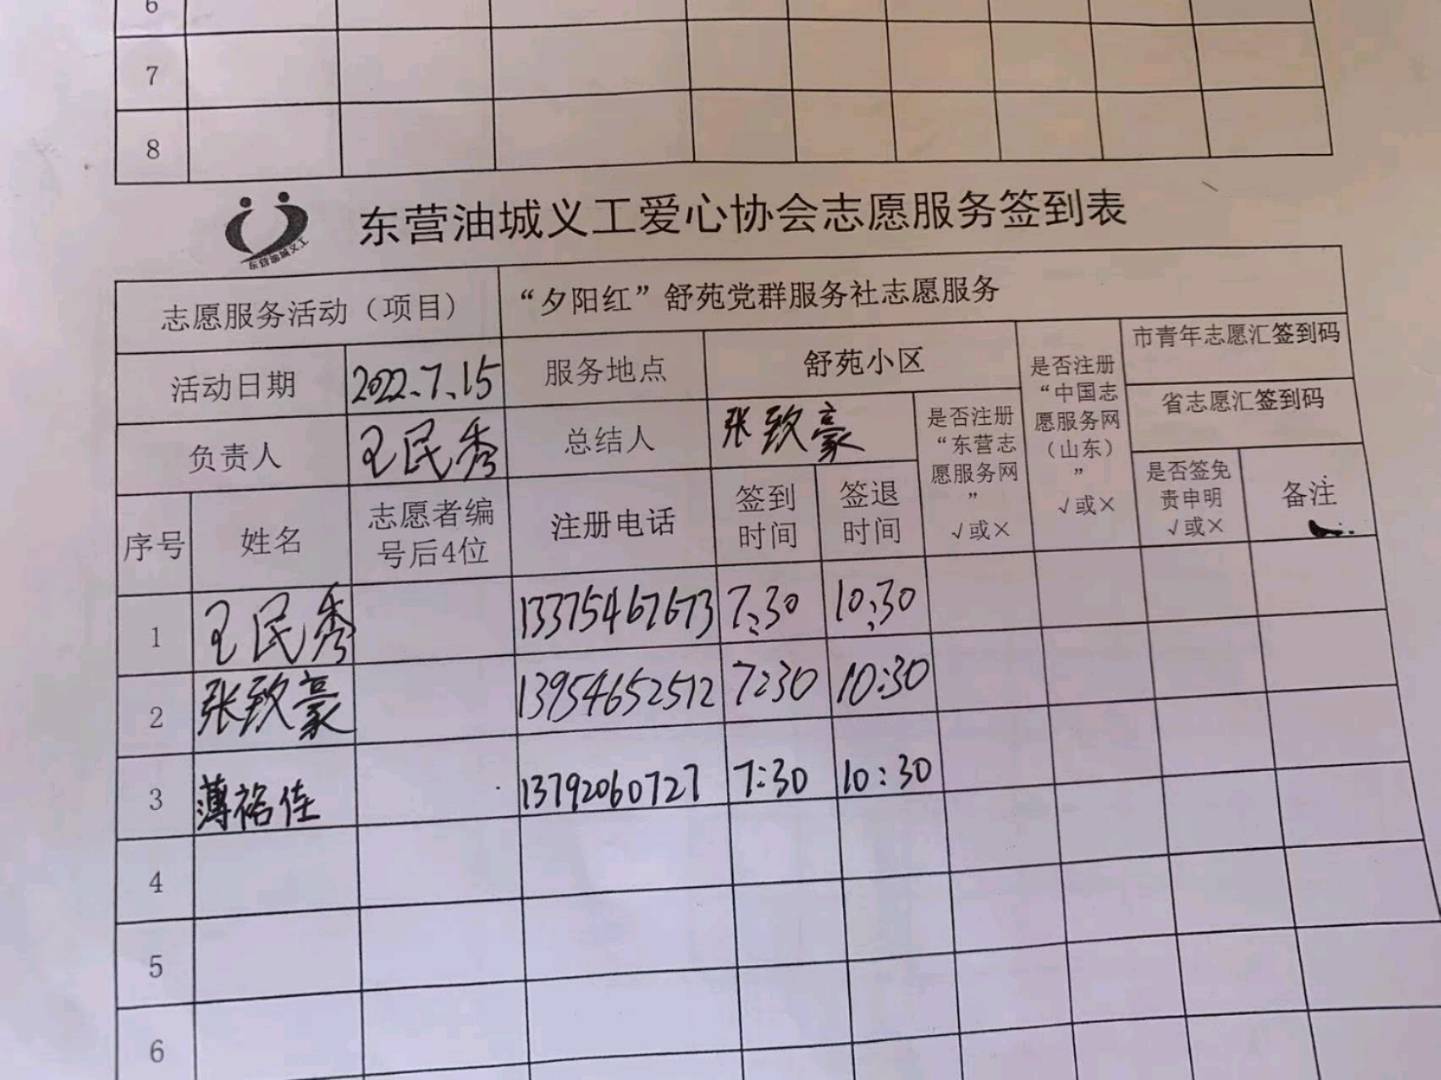 6
7
8
东营油城义工
东营油城义工爱心协会志愿服务签到表
志愿服务活动（项目） “夕阳红”舒苑党群服务社志愿服务
活动日期 2022.7.15 服务地点 舒苑小区
是否注册“中国志愿服务网（山东）” √或×
市青年志愿汇签到码
省志愿汇签到码
负责人 王民秀 总结人 张致豪
是否注册“东营志愿服务网” √或×
序号 姓名 志愿者编号后4位 注册电话 签到时间 签退时间 是否签免责申明 √或× 备注
1 王民秀 13375467673 7:30 10:30
2 张致豪 13954652512 7:30 10:30
3 薄裕佳 13792060727 7:30 10:30
4
5
6